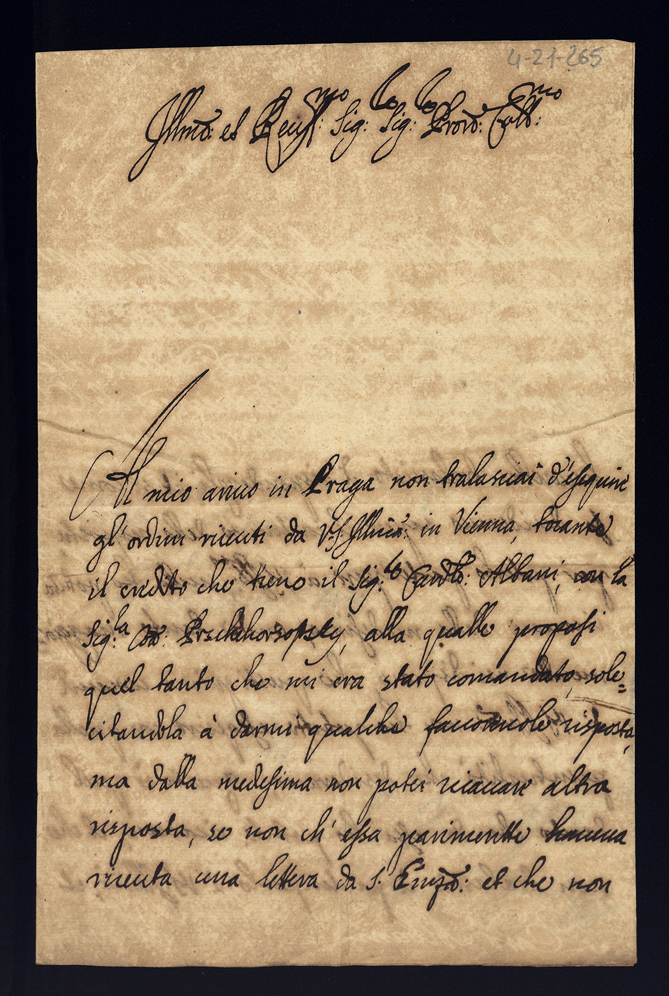 4-21-265
Illmo: et Reumo: Sig: Sig: Prõn: Collmo:
Al mio arivo in Praga non tralasciai d'esequire
gl'ordini riceuti da V.S. Illma: in Vienna, tocante
il credito che tiene il Sig:re Cardle: Albani, con la
Sig:ra Co: alla qualle proposi
quel tanto che mi era stato comandato, sole=
citandola à darmi qualche faccõneole risposta,
ma dalla medesima non potei ricavare altra
risposta, se non ch'essa parimentte haueua
riceuta una lettera da S. Emza: et che non